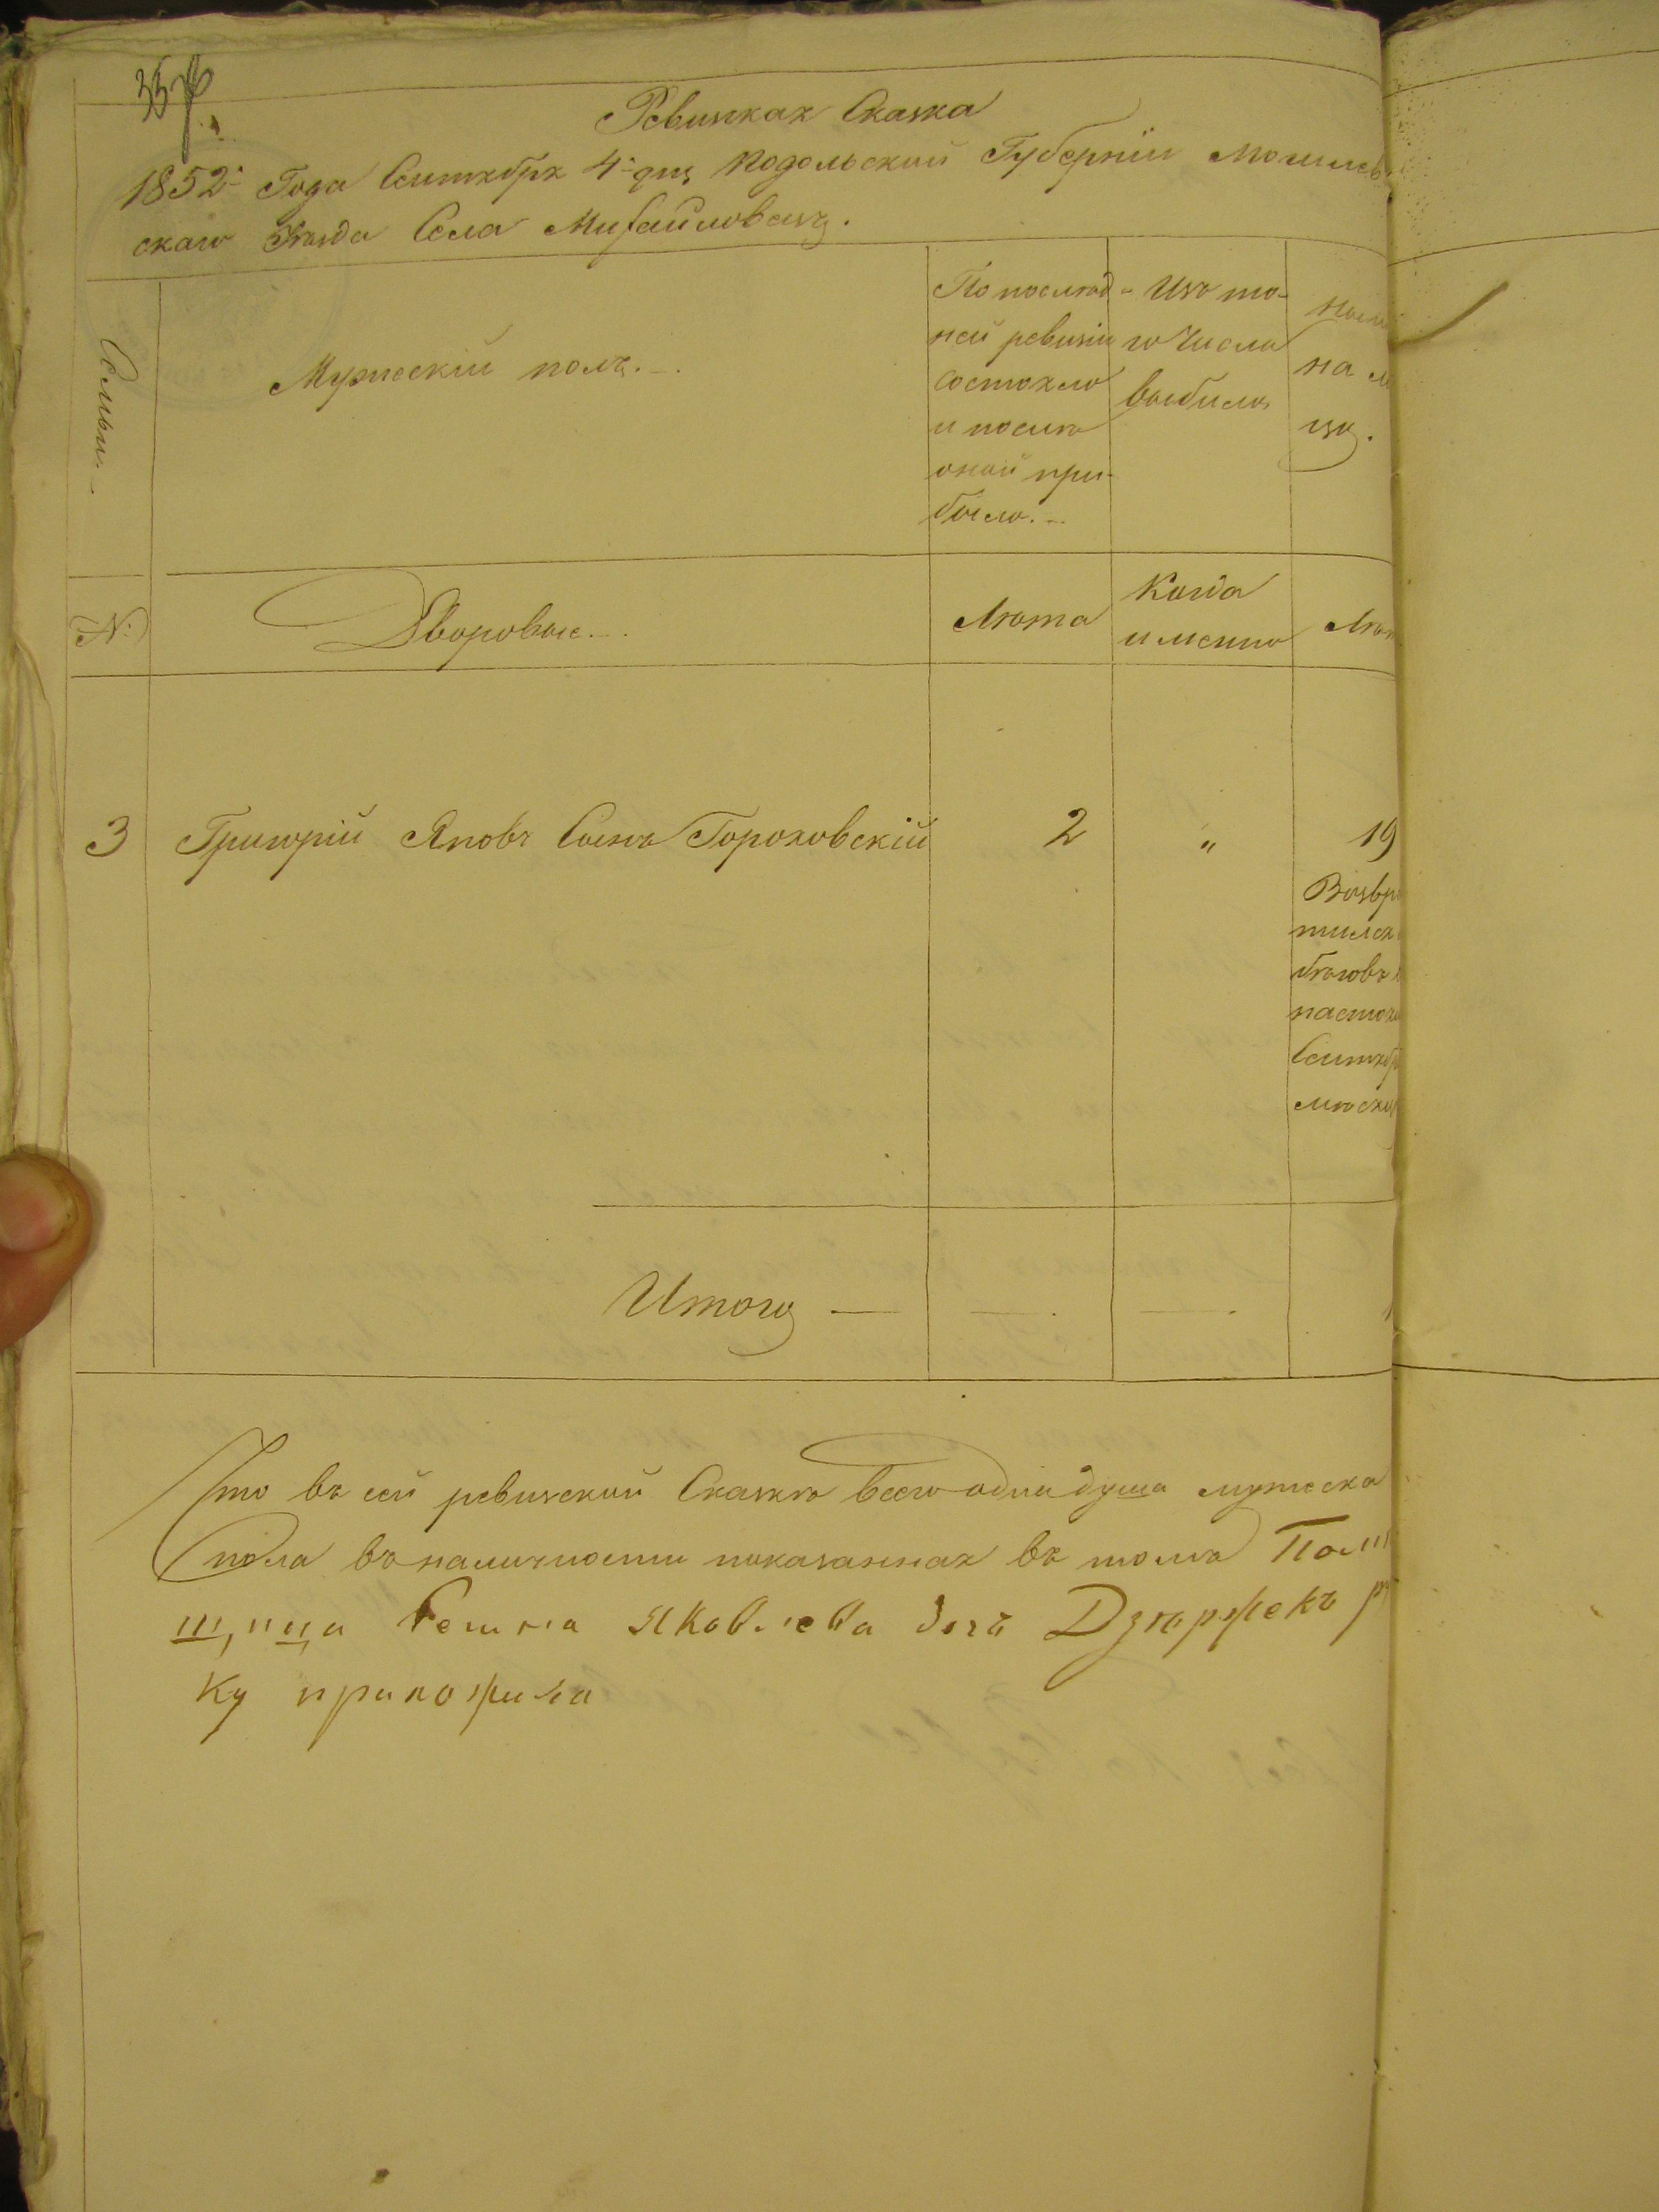 Ревизкая Сказка
1852 Года Сентября 4 дня Подольской Губернiи Могилев
скаго Уѣзда Села Михайловецъ.
Семьи.
Мужескiй полъ.
По послѣд-
ней ревизiи
состояло
и послѣ
оной при-
было.
Изъ то-
го числа
выбыло
на
Nо
Дворовые.
Лѣта
Когда
именно
Лѣт
3 Григорiй Яковъ Сынъ Гороховскiй 2 " 19
Возвра
тился
бѣговъ
настоя
Сентябр
мѣсяц
Итого
Что въ сей ревизской Сказкѣ всего одна душа мужеска
пола въ наличности показанная въ томъ Помѣ
щица Яковлева дочь
ку приложила